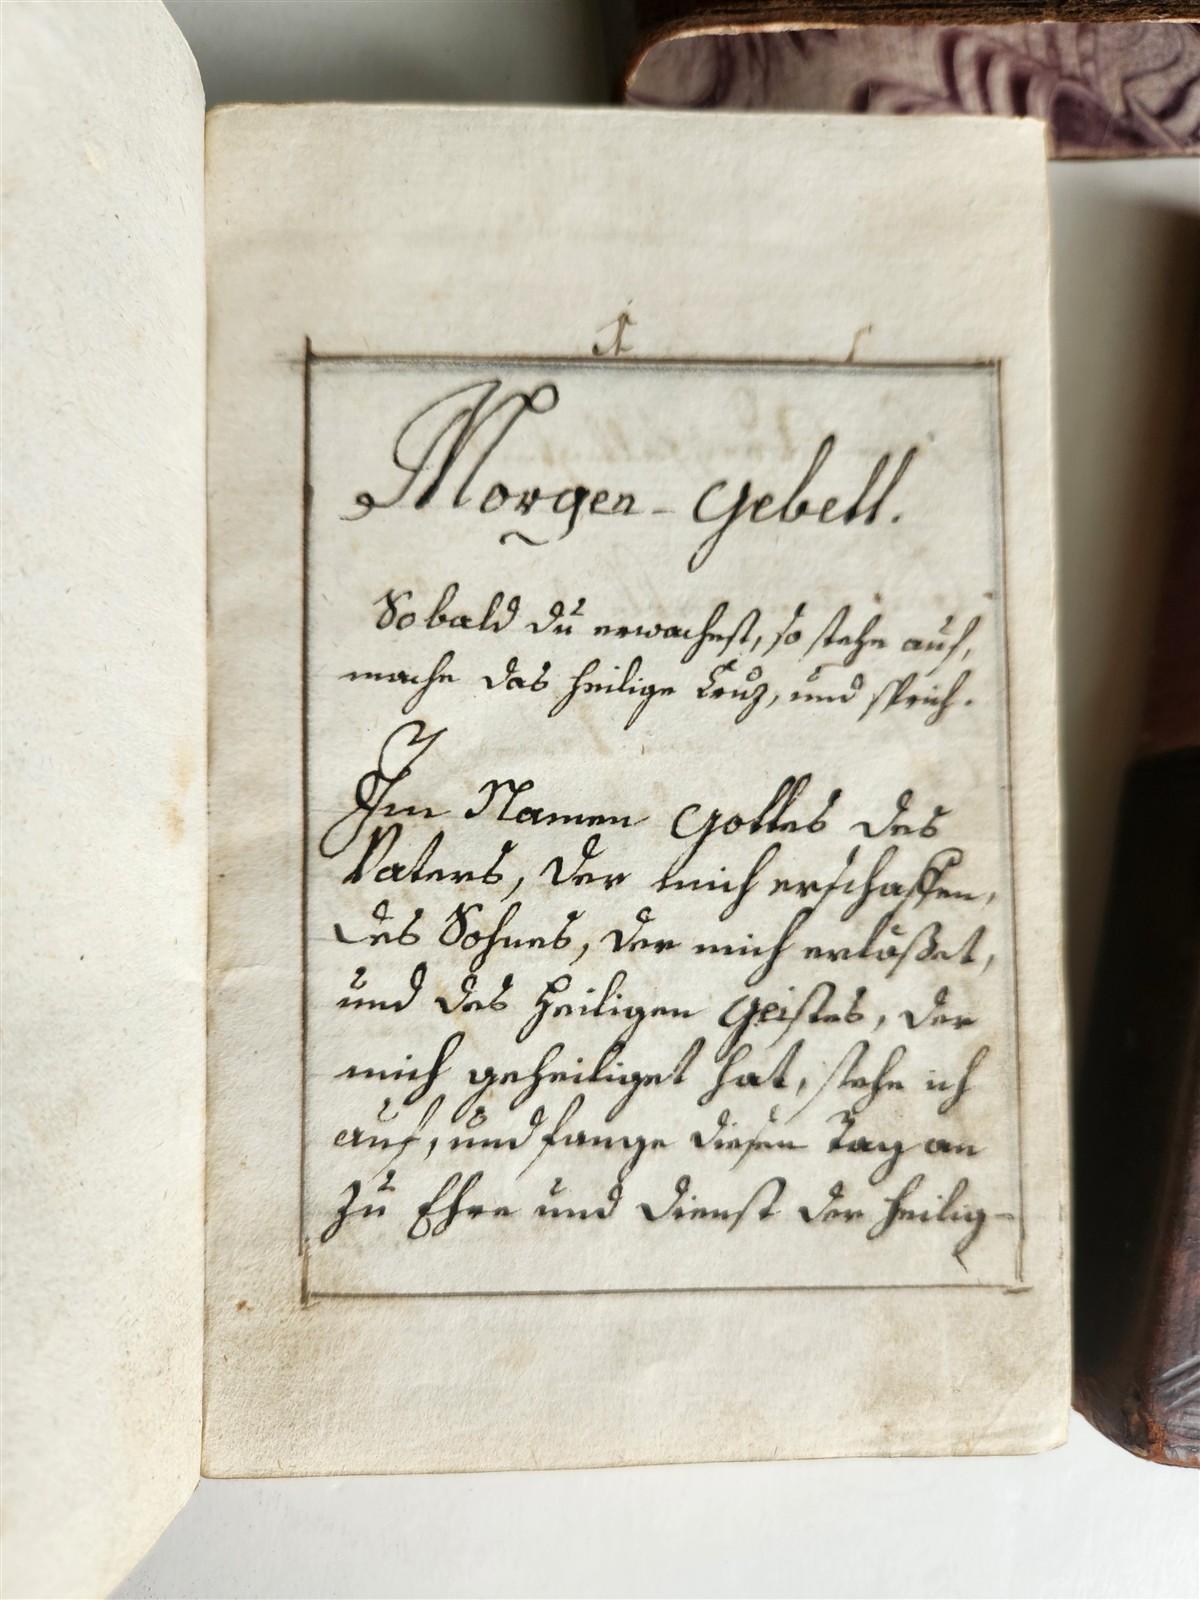 1
Morgen-Gebett.
Sobald du erwachest, so stehe auf,
mache das heilige Creuz, und sprich.
Im Namen Gottes des
Vaters, der mich erschaffen,
des Sohnes, der mich erlößet,
und des Heiligen Geistes, der
mich geheiliget hat, stehe ich
auf, und fange diesen Tag an
zu Ehre und Dienst der heilig-